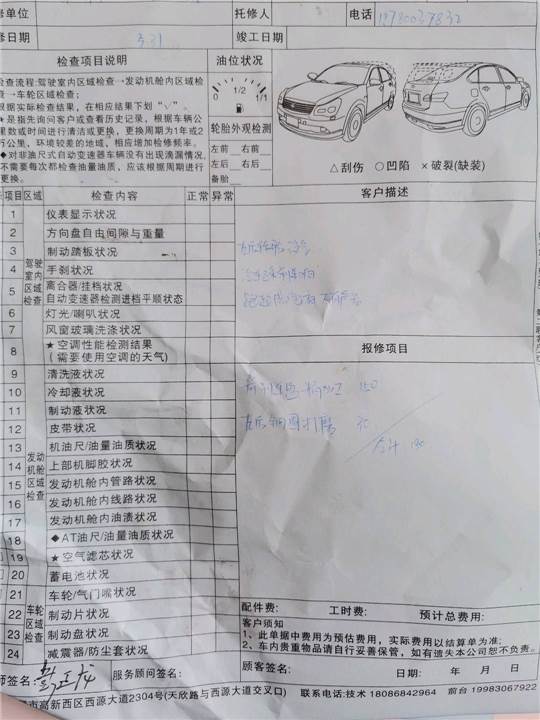 修单位 托修人 电话
修日期 3.31 竣工日期
检查项目说明 油位状况
检查流程:驾驶室内区域检查→发动机舱内区域检
查→车轮区域检查;
根据实际检查结果，在相应结果下划“√”。
★是指先询问客户或查看历史记录，根据车辆公
里数或时间进行清洁或更换，更换周期为1年或2
万公里，环境较差的地域，相应增加检修频率。
◆对非油尺式自动变速器车辆没有出现滴漏情况，
不需要每次都检查油量油质，应该根据周期进行
更换。
0 1/2 1/1
轮胎外观检测
左前 右前
左后 右后
备胎
△刮伤 ○凹陷 ×破裂(缺装)
项目 区域 检查内容 正常 异常
客户描述
驾驶室内区域检查
1 仪表显示状况
2 方向盘自由间隙与重量
3 制动踏板状况
4 手刹状况
5 离合器/挂档状况
自动变速器检测进档平顺状态
6 灯光/喇叭状况
7 风窗玻璃洗涤状况
8 ★空调性能检测结果
(需要使用空调的天气)
报修项目
发动机舱区域检查
9 清洗液状况
10 冷却液状况
11 制动液状况
12 皮带状况
13 机油尺/油量油质状况
14 上部机脚胶状况
15 发动机舱内管路状况
16 发动机舱内线路状况
17 发动机舱内油渍状况
18 ◆AT油尺/油量油质状况
19 ★空气滤芯状况
20 蓄电池状况
车轮区域检查
21 车轮/气门嘴状况
22 制动片状况
23 制动盘状况
24 减震器/防尘套状况
左后钢圈打磨
合计
配件费: 工时费: 预计总费用:
客户须知
1、此单据中费用为预估费用，实际费用以结算单为准;
2、车内贵重物品请自行妥善保管，如有遗失本公司恕不负责。
师签名: 服务顾问签名: 顾客签名: 日期: 年 月 日
市高新西区西源大道2304号(天欣路与西源大道交叉口) 联系电话:技术 18086842964 前台 19983067922